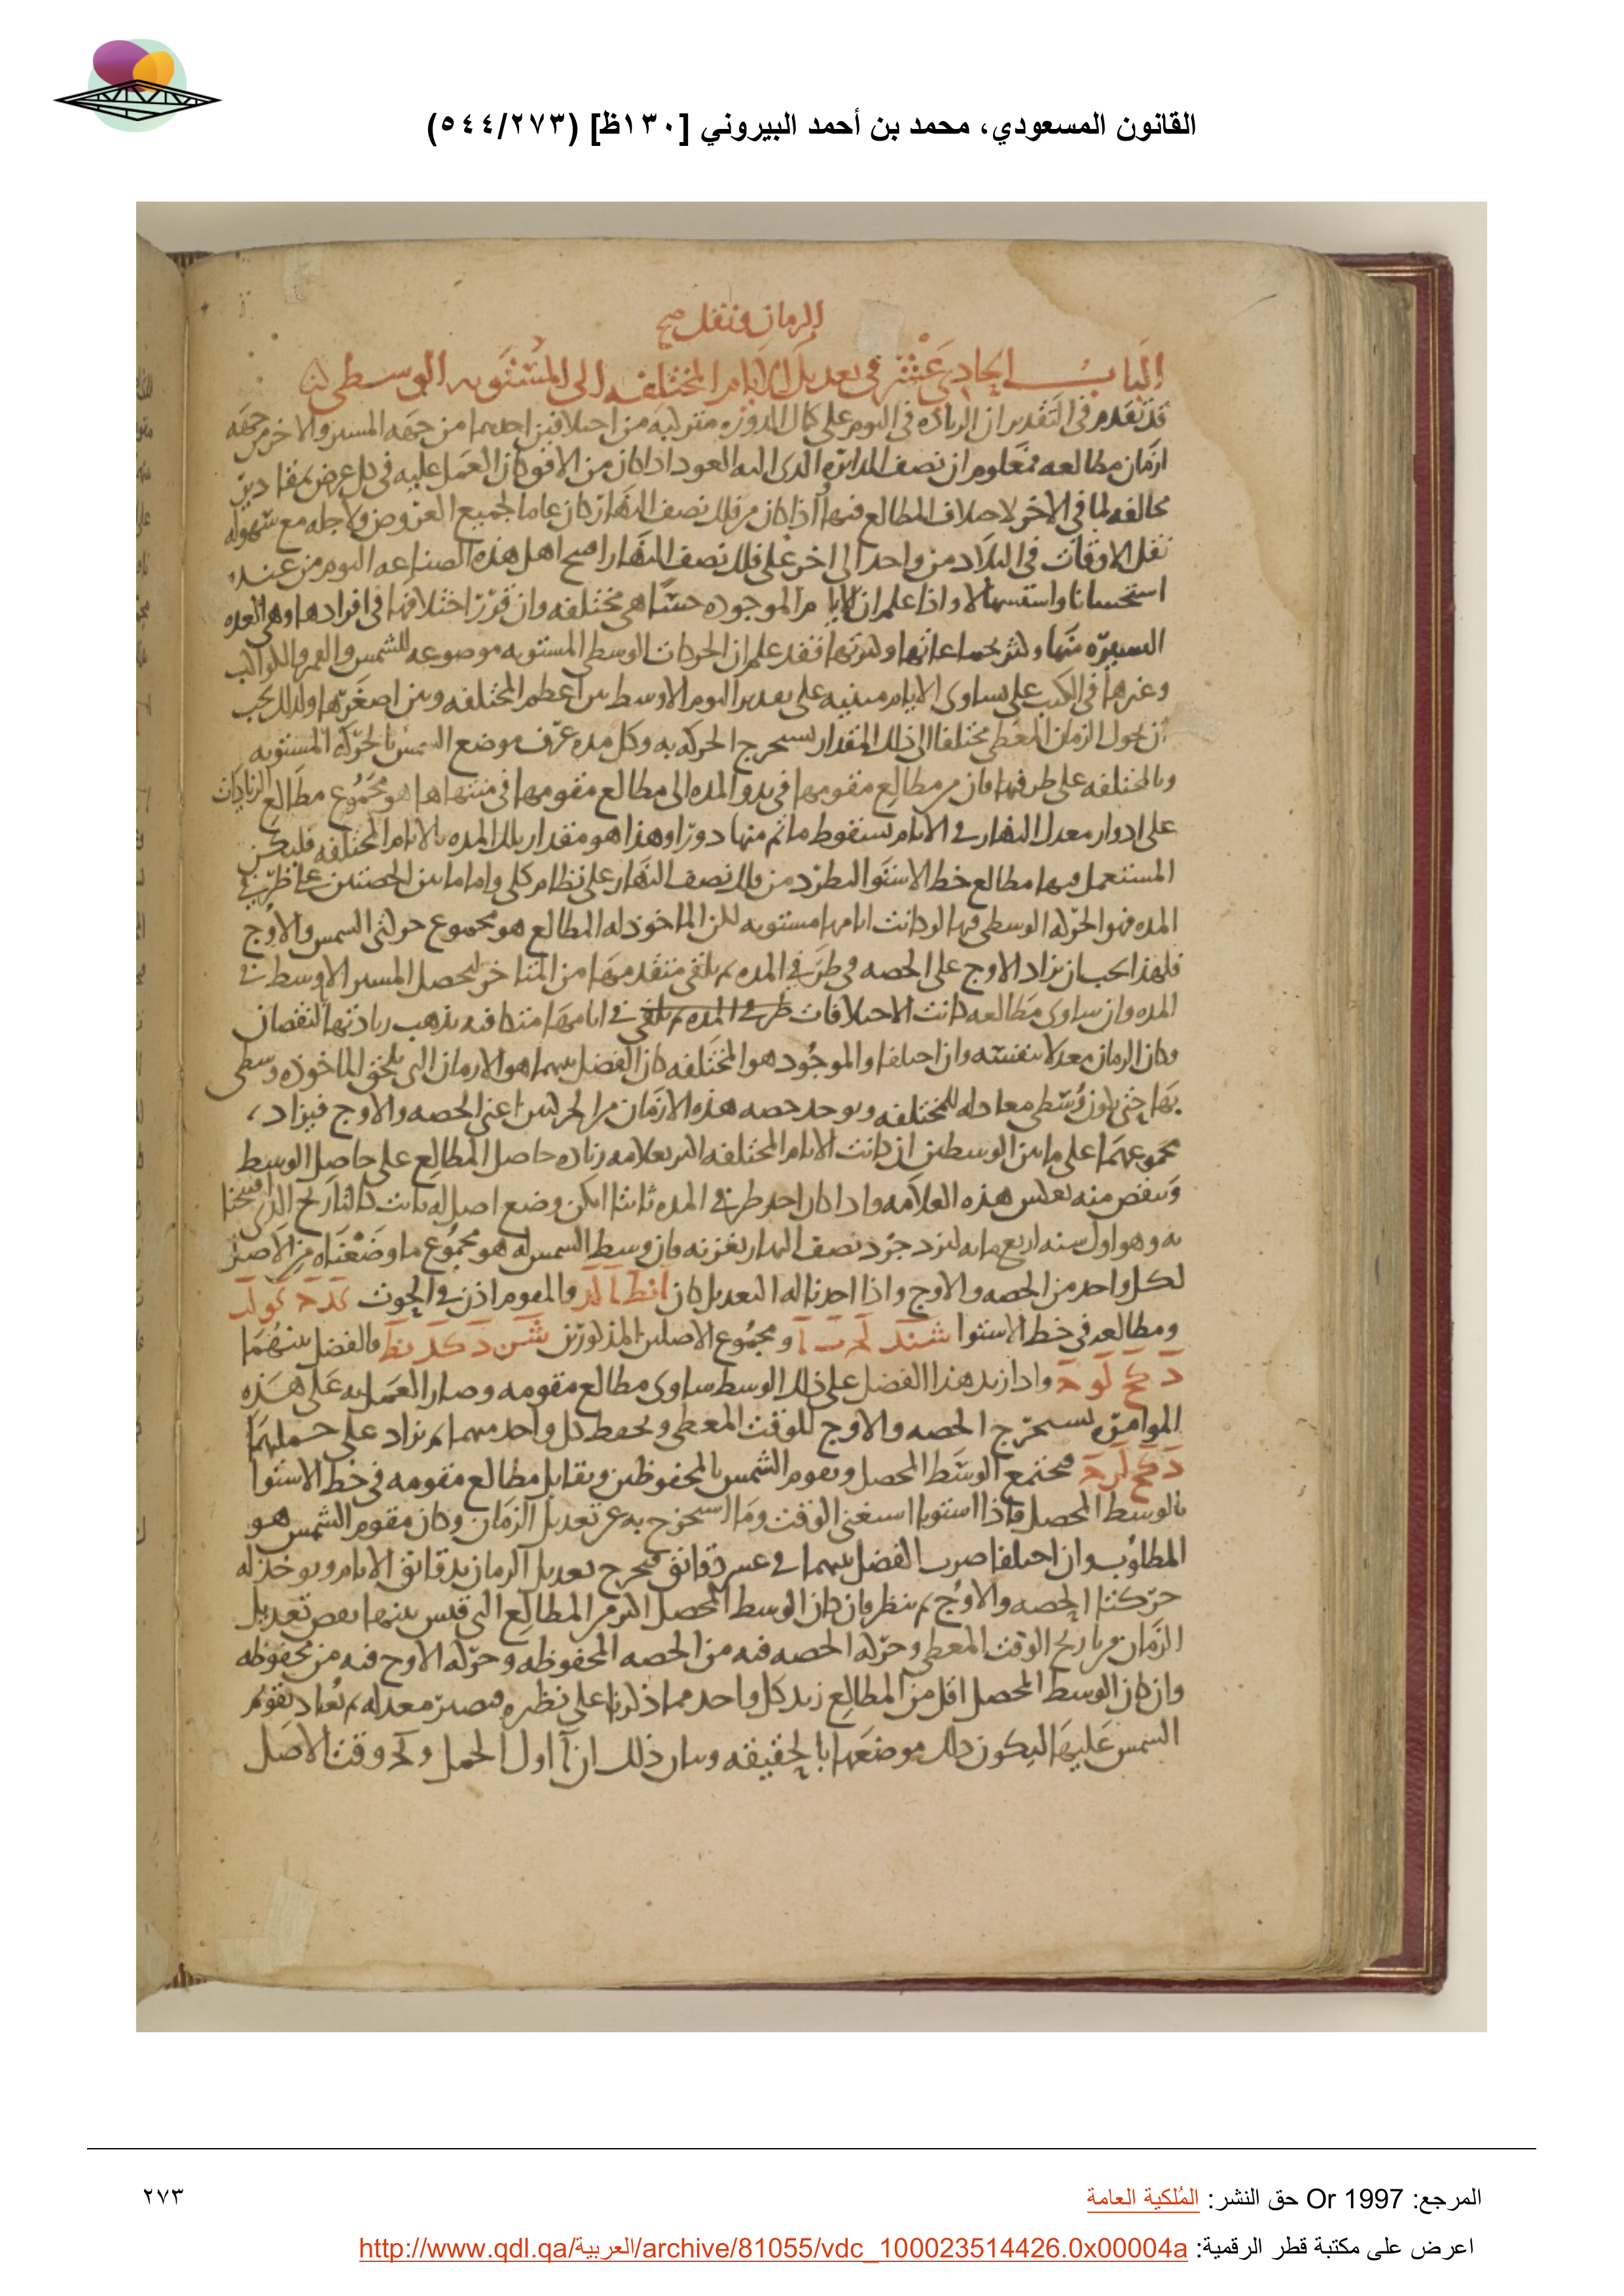 القانون المسعودي، محمد بن أحمد البيروني [١٣٠ظ] (٥٤٤/٢٧٣)
الزمان ونقل صح
الباب الحادي عشر في تعديل الايام المختلفه الى المستويه الوسطى
قد تقدم في التقدير ان الزياده في اليوم على كمال الدوره متركبه من اختلافين احدهما من جهه المسير والاخر من جهه
ازمان مطالعه فمعلوم ان نصف الدائره الذى اليه العود اذا كان من الافق كان العمل عليه في كل عرض بمقادير
مخالفه لما في الاخر لاختلاف المطالع فيها اذا كان من فلك نصف النهار كان عاما لجميع العروض ولاجله مع سهوله
نقل الاوقات في البلاد من واحد الى اخر على فلك نصف النهار افتتح اهل هذه الصناعه اليوم من عنده
استحسانا واستسهالا واذا علم ان الايام الموجوده حسا هي مختلفه وان قدر اختلافها في افرادها وهي العده
اليسيره منها وكثر بجماعاتها وكثرتها فقد علم ان الحركات الوسطى المستويه موضوعه للشمس والقمر والكواكب
وغيرها في الكتب على تساوى الايام مبنيه على تقدير اليوم الاوسط بين اعظم المختلفه وبين اصغرها ولذلك يجب
ان يحول الزمان المعطى مختلفا الى ذلك المقدار ليستخرج الحركه به وكل مده عرف موضع الشمس بالحركه المستويه
وبالمختلفه على طرفيها فان من مطالع مقومها في بدو المده الى مطالع مقومها في منتهاها هو مجموع مطالع الزيادات
على ادوار معدل النهار في الايام بسقوط ما تم منها دورا وهذا هو مقدار تلك المده بالايام المختلفه فليكن
المستعمل فيها مطالع خط الاستوا ليطرد من فلك نصف النهار على نظام كلى واما ما بين الحصتين على طرفي
المده فهو الحركه الوسطى فيها لو كانت ايامها مستويه لكن الماخوذ له المطالع هو مجموع حركتى الشمس والاوج
فلهذا يجب ان يزاد الاوج على الحصه في طرفي المده ثم يلقى متقدمها من المتاخر ليحصل المسير الاوسط في
المده وان ساوى مطالعه كانت الاختلافات طرفي المده ثم يلقى في ايامها متكافيه يذهب زيادتها بالنقصان
وكان الزمان معدلا بنفسه وان اختلفا والموجود هو المختلفه كان الفضل بينهما هو الازمان التى يلحق الماخوذه وسطى
بها حتى يكون وسطى معادله للمختلفه ويوجد حصه هذه الازمان من الحركتين اعنى الحصه والاوج فيزاد
مجموعهما على ما بين الوسطين ان كانت الايام المختلفه اكثر بعلامه زياده حاصل المطالع على حاصل الوسط
وينقص منه بعكس هذه العلامه واذا كان احد طرفي المده ثابتا امكن وضع اصل له ثابت كالتاريخ الذى افتتحنا
به وهو اول سنه اربع مايه ليزدجرد نصف النهار بغزنه فان وسط الشمس له هو مجموع ما وضعناه من الاصلين
لكل واحد من الحصه والاوج واذا اخذنا له التعديل كان والمقوم اذن في الحوت
ومطالعه في خط الاستوا ومجموع الاصلين المذكورين والفضل بينهما
واذا زيد هذا الفضل على ذلك الوسط ساوى مطالع مقومه وصار العمل به على هذه
الموامره يستخرج الحصه والاوج للوقت المعطى ويحفظ كل واحد منهما ثم يزاد على جملتهما
فيجتمع الوسط المحصل ويقوم الشمس بالمحفوظين ويقابل مطالع مقومه في خط الاستوا
بالوسط المحصل فاذا استويا استغنى الوقت وما استخرج به عن تعديل الزمان وكان مقوم الشمس هو
المطلوب وان اختلفا ضرب الفضل بينهما في عشر دقائق فيخرج تعديل الزمان بدقائق الايام ويوخذ له
حركتا الحصه والاوج ثم ينظر فان كان الوسط المحصل اكثر من المطالع التى قيس بينها نقص تعديل
الزمان من تاريخ الوقت المعطى وحركه الحصه فيه من الحصه المحفوظه وحركه الاوج فيه من محفوظه
وان كان الوسط المحصل اقل من المطالع زيد كل واحد مما ذكرنا على نظيره فيصير معدله ثم يعاد تقويم
الشمس عليها ليكون ذلك موضعها بالحقيقه وبيان ذلك ان آ اول الحمل و وقت الاصل
المرجع: Or 1997 حق النشر: المُلكية العامة
٢٧٣
اعرض على مكتبة قطر الرقمية: http://www.qdl.qa/العربية/archive/81055/vdc_100023514426.0x00004a